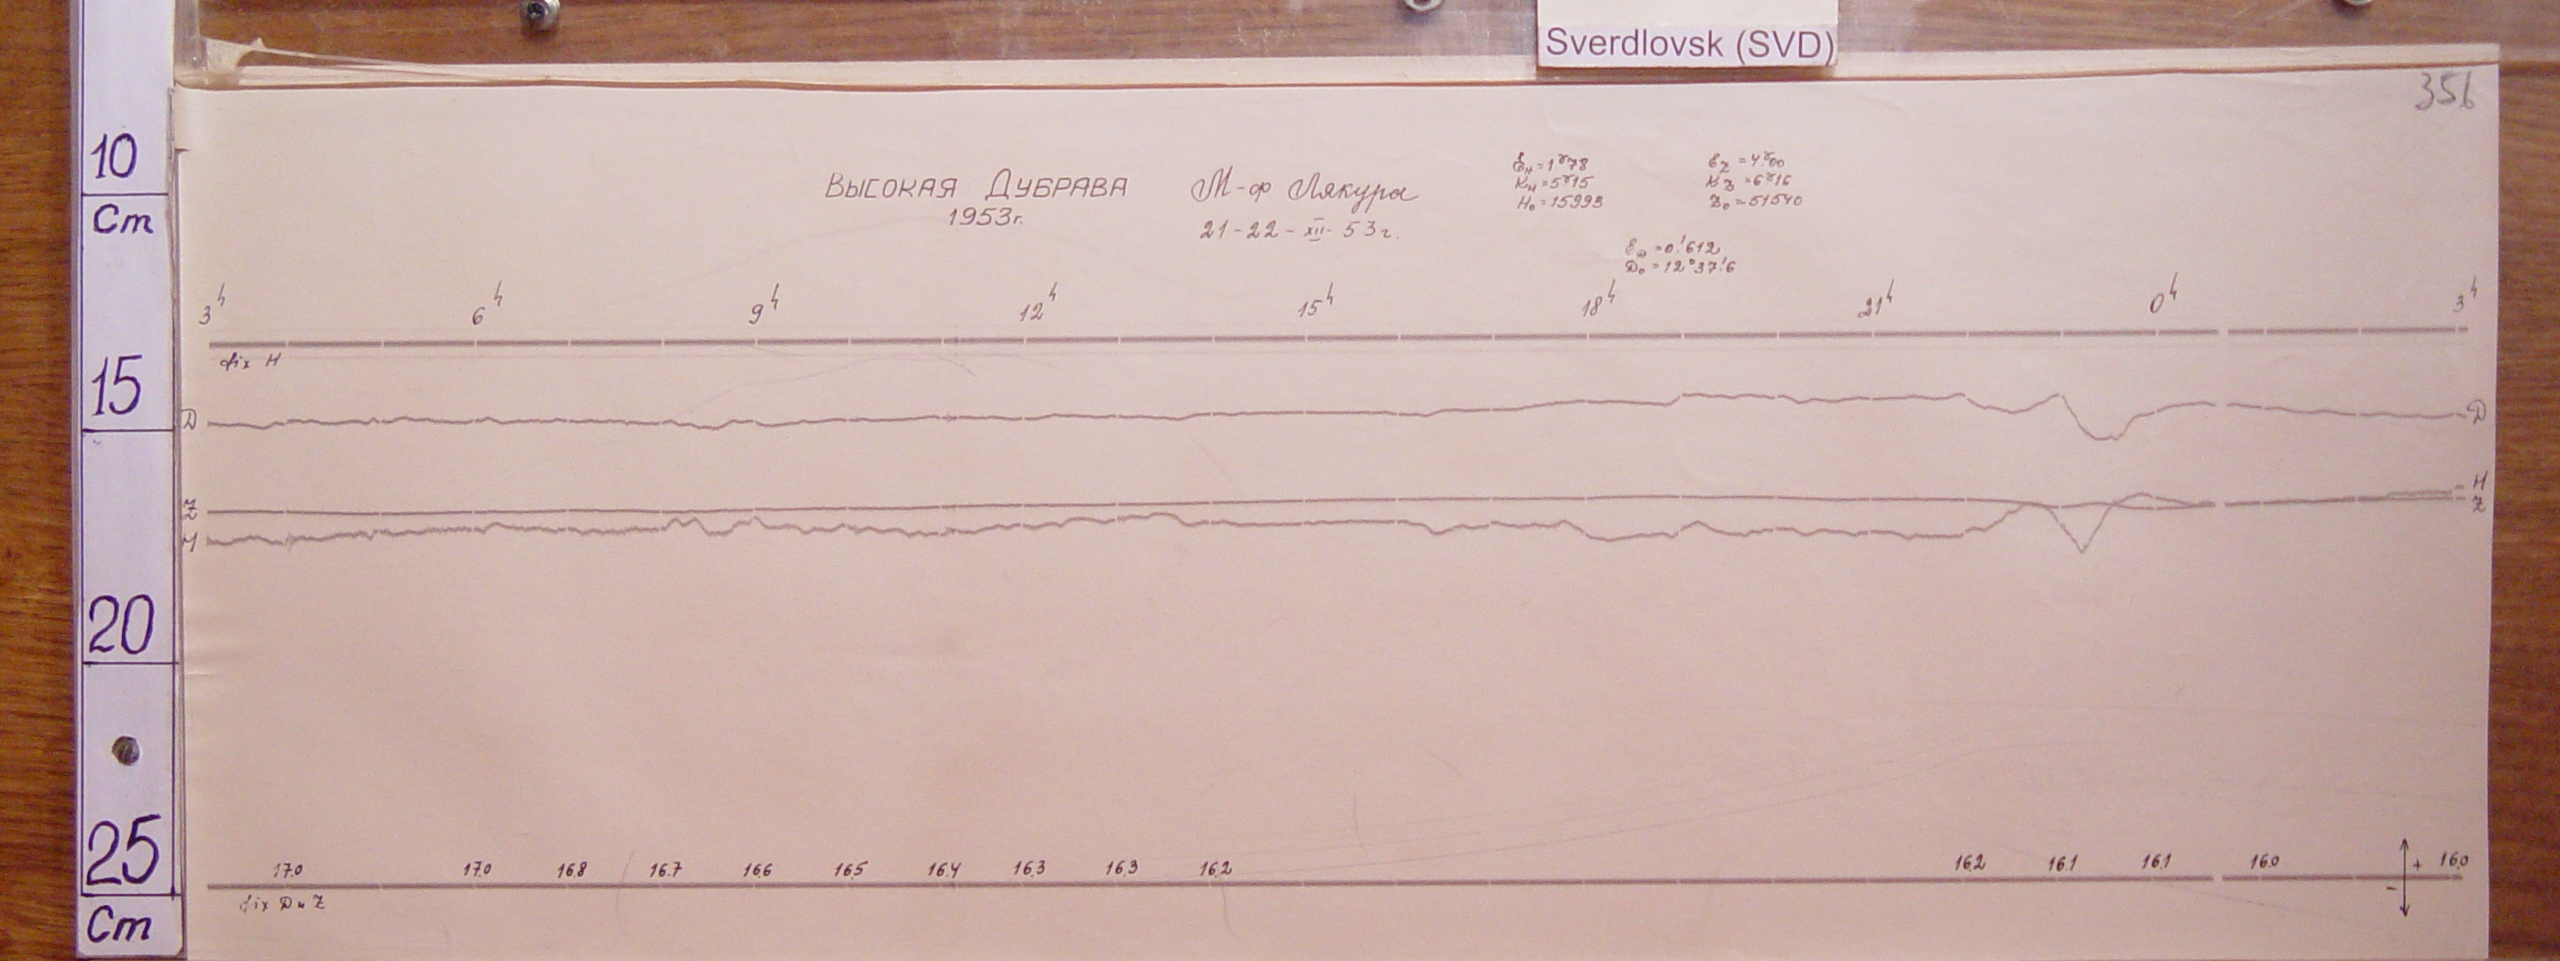 Sverdlovsk (SVD)
356
10
Cm
15
20
25
Cm
Высокая Дубрава
1953г.
М-ф Лякура
21-22-XII-53г.
Ɛн = 1ᵞ78
Кн = 5ᵞ15
Н₀ = 15993
Ɛz = 4ᵞ00
Кz = 6ᵞ16
Z₀ = 51540
ƐD = 0'.612
D₀ = 12°37'.6
3ʰ 6ʰ 9ʰ 12ʰ 15ʰ 18ʰ 21ʰ 0ʰ 3ʰ
fix H
D D
H
Z Z
H
17.0 17.0 16.8 16.7 16.6 16.5 16.4 16.3 16.3 16.2 16.2 16.1 16.1 16.0 16.0
+
-
fix D и Z